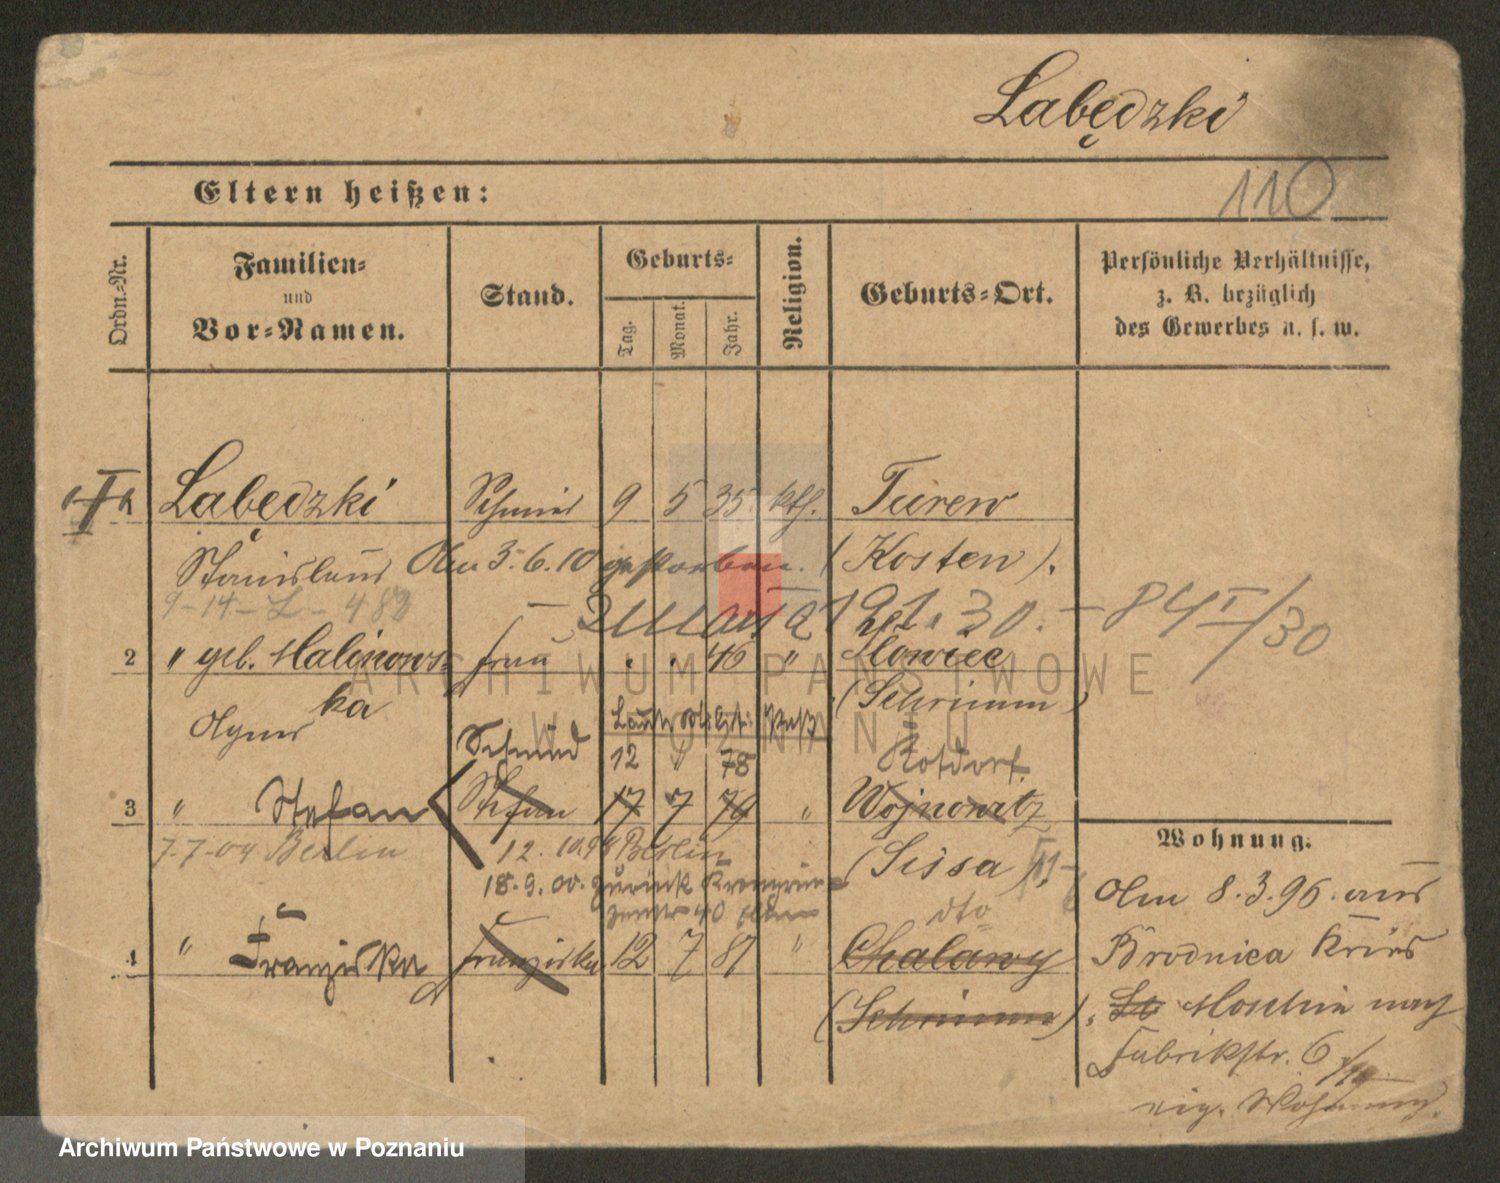 Łabędzki
Eltern heißen:
110
Ordn.-Nr.
Familien-
und
Vor-Namen.
Stand.
Geburts-
Tag.
Monat.
Jahr.
Religion.
Geburts-Ort.
Persönliche Verhältnisse,
z. B. bezüglich
des Gewerbes u. s. w.
Łabędzki Schmied 9 5 35 kth. Turew
Stanislaus Am 3.6.10 gestorben. (Kosten).
9-14-L-483
84 I/30
2 " geb. Malinows- Frau 46 " Mowiec
ka (Schrimm)
Agnes
Schmied 12 " 78 Rotdorf
3 " Stefan Stefan 17 7 79 " Wojnowitz
7-7-04 Berlin 12. 10.98 Berlin (Lissa).
18.9.00. zurück
dto
4 " Franziska Franziska 12 7 87 " Chalawy
(Schrimm)
Wohnung.
Am 8.3.96. aus
Brodnica Kreis
Moschin nach
Fabrikstr. 6
eig. Wohnung.
ARCHIWUM PAŃSTWOWE
W POZNANIU
Archiwum Państwowe w Poznaniu